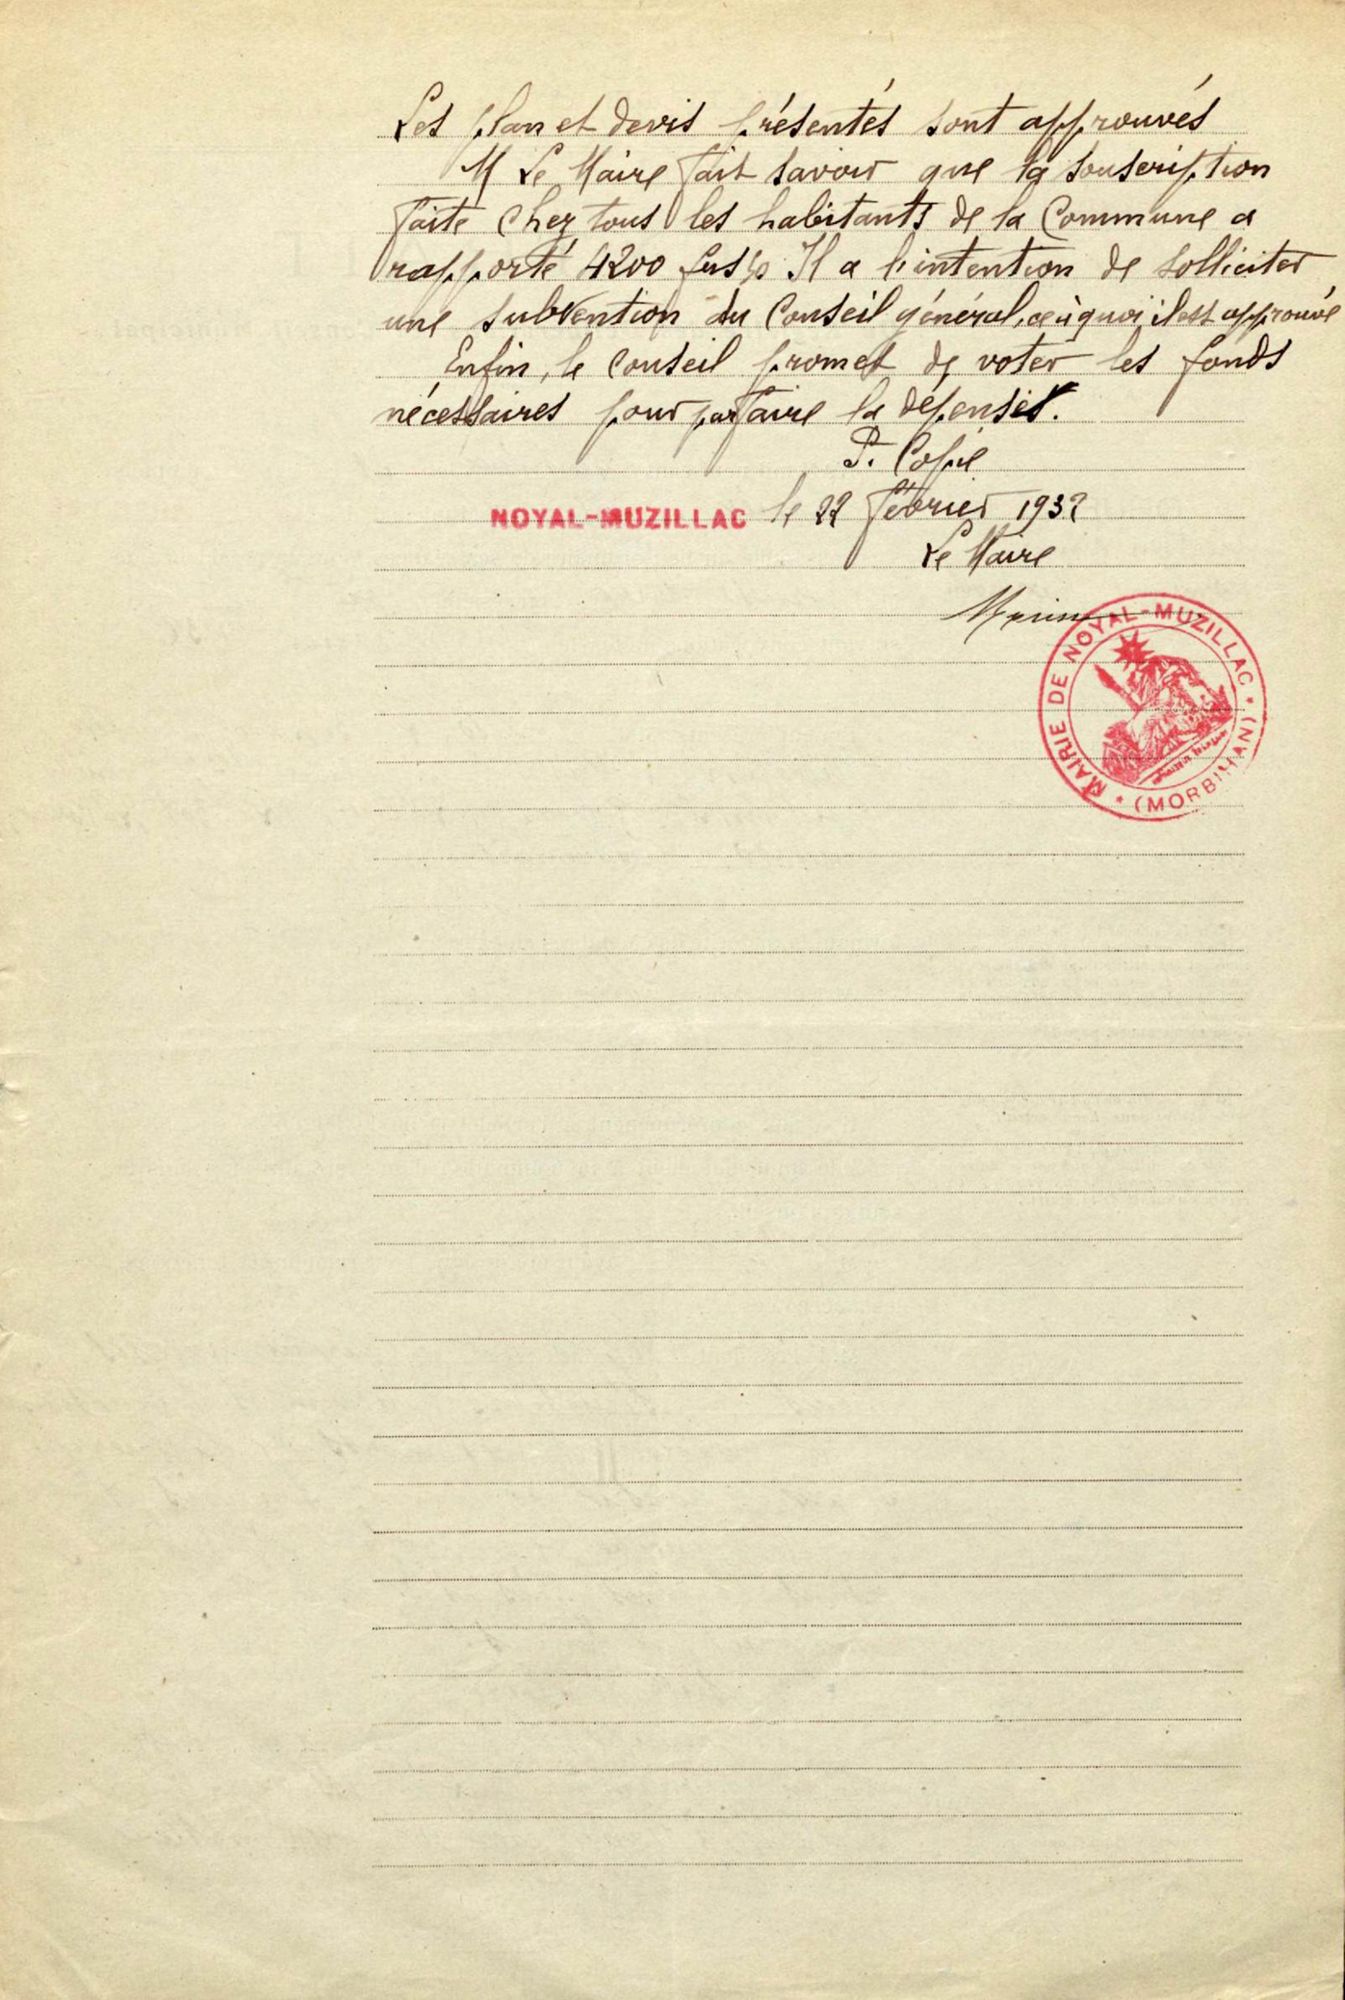 Les plan et devis présentés sont approuvés
M Le Maire fait savoir que la souscription
faite chez tous les habitants de la Commune a
rapporté 4200 frs Il a l'intention de solliciter
une subvention du Conseil général, ce à quoi il est approuvé
Enfin, le Conseil promet de voter les fonds
nécessaires pour parfaire la dépense.
P. Copie
NOYAL-MUZILLAC le 22 février 1932
Le Maire
MAIRIE DE NOYAL-MUZILLAC * (MORBIHAN) *